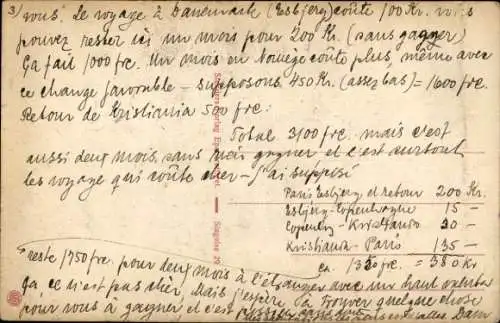 3)
vous. Le voyage à Danemark (Esbjerg) coûte 100 Kr. vous
pouvez rester ici un mois pour 200 Kr. (sans gagner)
Ça fait 1000 frc. Un mois en Norvège coûte plus, même avec
ce change favorable – supposons 450 Kr. (assez bas) = 1600 frc.
Retour de Kristiania 500 frc:
Total 3100 frc. mais c'est
aussi deux mois, sans rien gagner et c'est surtout
les voyage qui coûte cher – J'ai supposé
Paris Esbjerg et retour 200 Kr.
Esbjerg-Copenhague 15 –
Copenh – Kristiania 30 –
Kristiania – Paris 135 –
ca. 1350 frc. = 380 Kr
reste 1750 frc. pour deux mois à l'étranger avec un haut valuta
Ça ce n'est pas cher. Mais j'espère à trouver quelque chose
pour vous à gagner et c'est